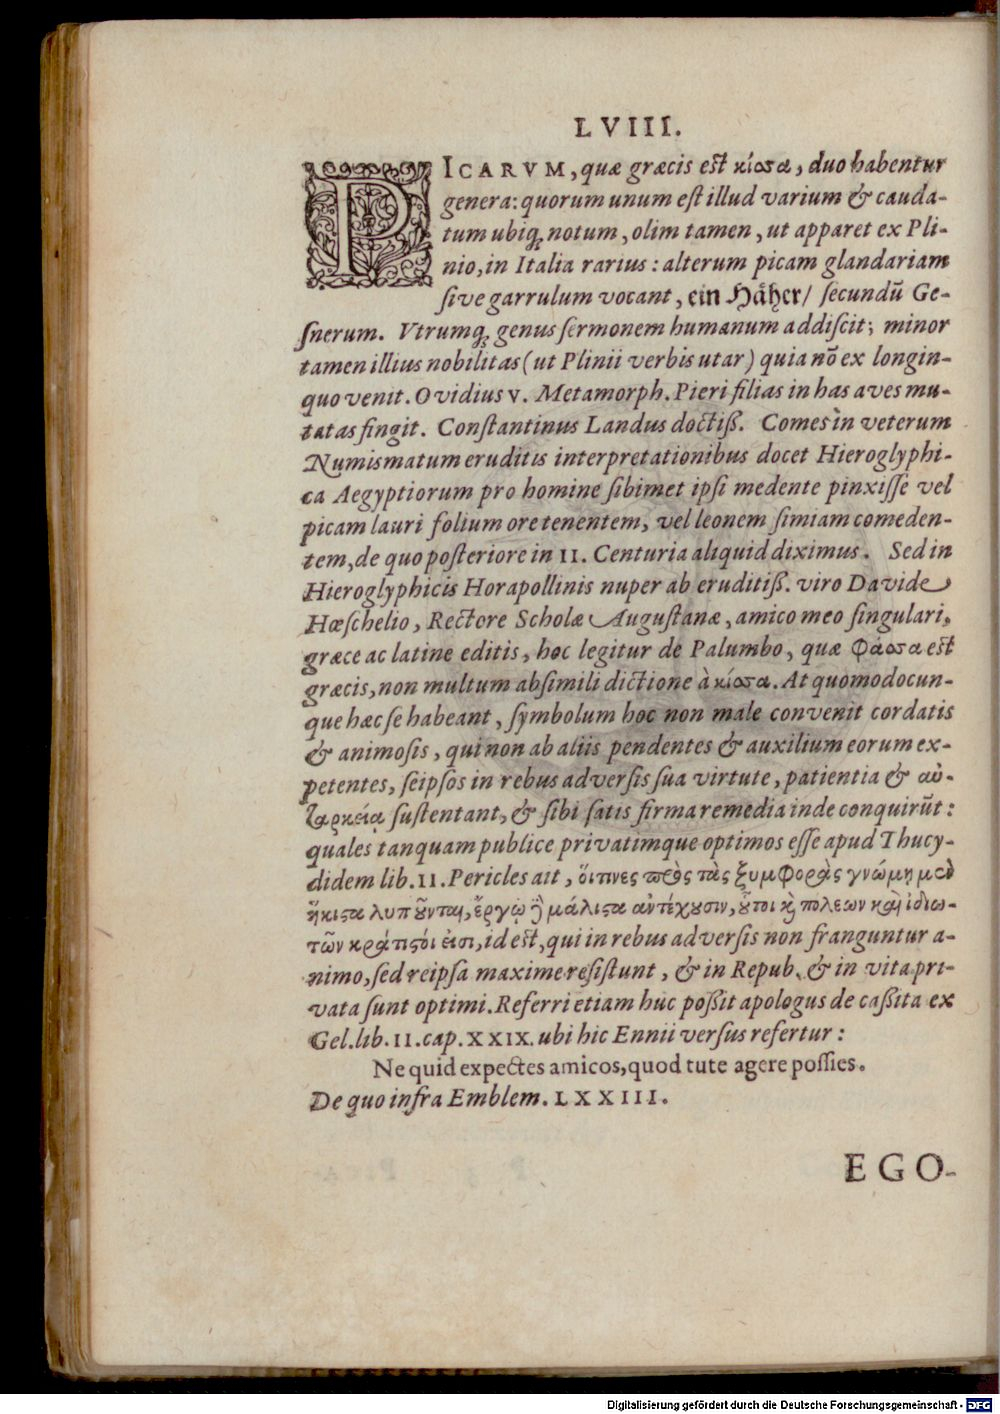 LVIII.
PICARVM, quæ græcis est κίσσα, duo habentur
genera: quorum unum est illud varium & cauda-
tum ubiq; notum, olim tamen, ut apparet ex Pli-
nio, in Italia rarius: alterum picam glandariam
sive garrulum vocant, ein Häher/ secundū Ge-
snerum. Vtrumq; genus sermonem humanum addiscit; minor
tamen illius nobilitas (ut Plinii verbis utar) quia nō ex longin-
quo venit. Ovidius v. Metamorph. Pieri filias in has aves mu-
tatas fingit. Constantinus Landus doctiß. Comes in veterum
Numismatum eruditis interpretationibus docet Hieroglyphi-
ca Aegyptiorum pro homine sibimet ipsi medente pinxisse vel
picam lauri folium ore tenentem, vel leonem simiam comeden-
tem, de quo posteriore in II. Centuria aliquid diximus. Sed in
Hieroglyphicis Horapollinis nuper ab eruditiß. viro Davide
Hœschelio, Rectore Scholæ Augustanæ, amico meo singulari,
græce ac latine editis, hoc legitur de Palumbo, quæ φάσσα est
græcis, non multum absimili dictione à κίσσα. At quomodocun-
que hæc se habeant, symbolum hoc non male convenit cordatis
& animosis, qui non ab aliis pendentes & auxilium eorum ex-
petentes, seipsos in rebus adversis sua virtute, patientia & αὐ-
ταρκείᾳ sustentant, & sibi satis firma remedia inde conquirūt:
quales tanquam publice privatimque optimos esse apud Thucy-
didem lib. II. Pericles ait, οἵτινες πρὸς τὰς ξυμφορὰς γνώμῃ μὲν
ἥκιστα λυποῦνται, ἔργῳ ἢ μάλιστα ἀντέχουσιν, οὗτοι κỳ πόλεων καὶ ἰδιω-
τῶν κράτιστοί εἰσι, id est, qui in rebus adversis non franguntur a-
nimo, sed reipsa maxime resistunt, & in Repub. & in vita pri-
vata sunt optimi. Referri etiam huc poßit apologus de caßita ex
Gel. lib. II. cap. XXIX. ubi hic Ennii versus refertur:
Ne quid expectes amicos, quod tute agere possies.
De quo infra Emblem. LXXIII.
EGO-
Digitalisierung gefördert durch die Deutsche Forschungsgemeinschaft - DFG